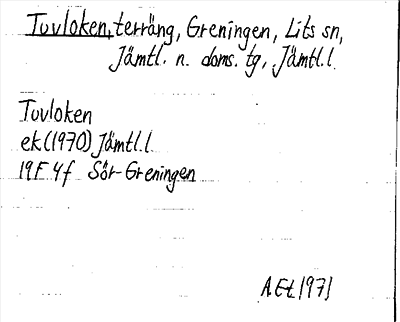 Tuvloken, terräng, Greningen, Lits sn,
Jämtl. n. doms. tg, Jämtl. l.
Tuvloken
ek (1970) Jämtl. l.
19F 4f Sör-Greningen
A.Et. 1971